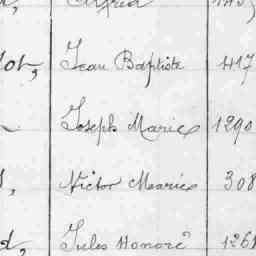 Alfred
lot, Jean Baptiste 417
Joseph Marie 1290
Victor Marie 308
d, Jules Honoré 1261